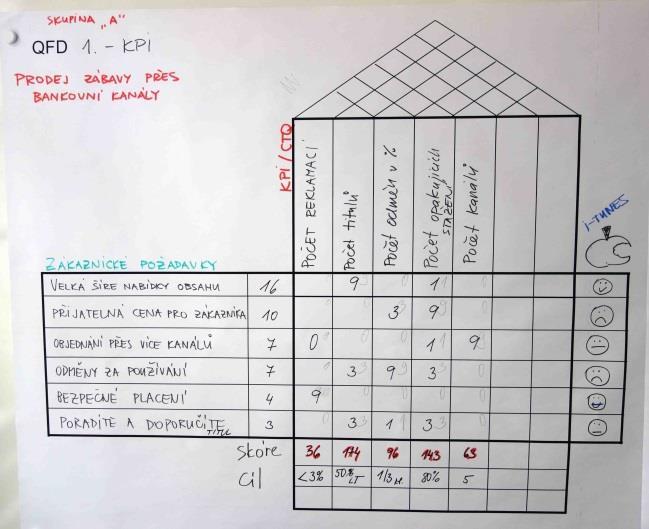 SKUPINA „A"
QFD 1. - KPI
PRODEJ ZÁBAVY PŘES
BANKOVNÍ KANÁLY
KPI/CTQ
POČET REKLAMACÍ
POČET titulů
Počet odměn v %
Počet opakujících
STAŽENÍ
Počet kanálů
i-TUNES
ZÁKAZNICKÉ POŽADAVKY
VELKÁ ŠÍŘE NABÍDKY OBSAHU 16 9 1
PŘIJATELNÁ CENA PRO ZÁKAZNÍKA 10 3 9
OBJEDNÁNÍ PŘES VÍCE KANÁLŮ 7 0 1 9
ODMĚNY ZA POUŽÍVÁNÍ 7 3 9 3
BEZPEČNÉ PLACENÍ 4 9
PORADÍTE A DOPORUČÍTE 3 3 1 3
TITUL
Skóre 36 174 96 143 63
Cíl <3% 50% LT 1/3 M. 80% 5